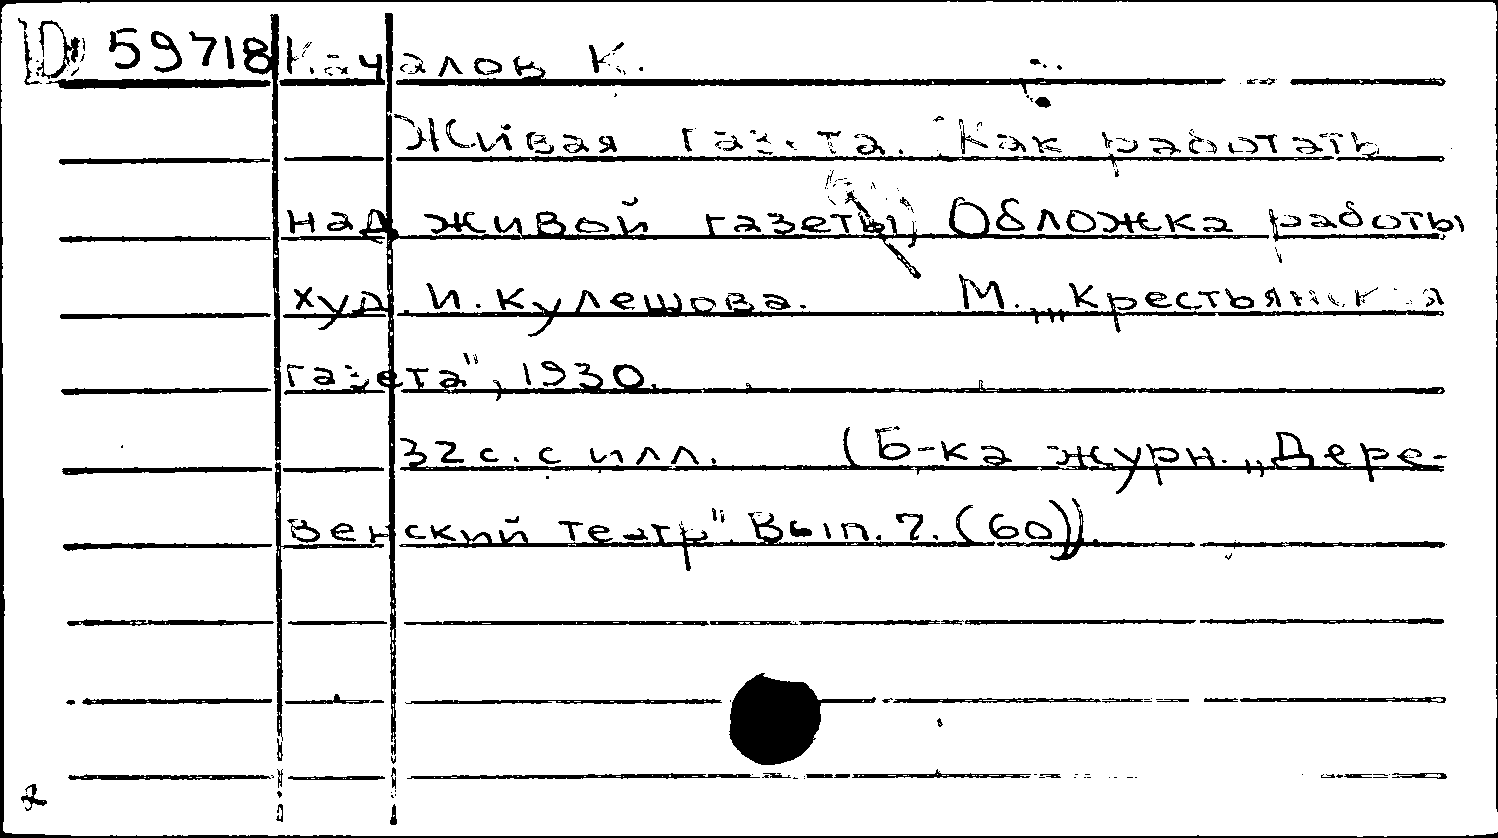 D 59718 Качалов К.
Живая газета. Как работать
над живой газеты, Обложка работы
худ. И. Кулешова. М., „Крестьянская
газета", 1930.
32 с. с илл. (Б-ка журн. „Дере-
венский театр". Вып. 7. (60)).